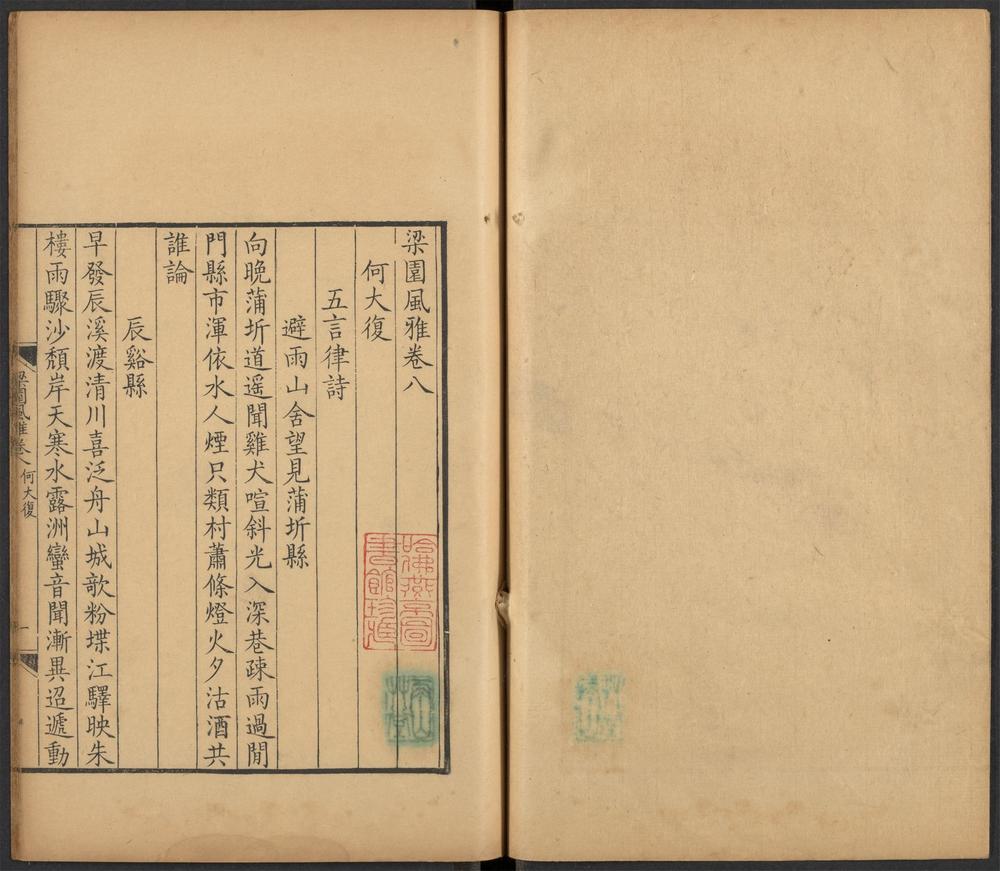 梁園風雅卷八
何大復
五言律詩
避雨山舍望見蒲圻縣
向晚蒲圻道遥聞雞犬喧斜光入深巷疎雨過閒
門縣市渾依水人煙只類村蕭條燈火夕沽酒共
誰論
辰谿縣
早發辰溪渡清川喜泛舟山城歌粉堞江驛映朱
樓雨驟沙頹岸天寒水露洲蠻音聞漸異迢遞動
梁園風雅卷八
何大復
一
哈佛燕京圖
書館珍藏